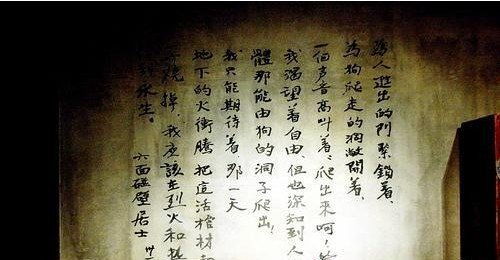 為人進出的門緊鎖着、
為狗爬走的洞敞開着、
一個声音高叫着、爬出來呵！
我渴望着自由、但也深知到人
體那能由狗的洞子爬出！
我只能期待着 那一天
地下的火衝騰 把這活棺材和
燒掉、我應該在烈火和热
永生。
六面碰壁居士 卅